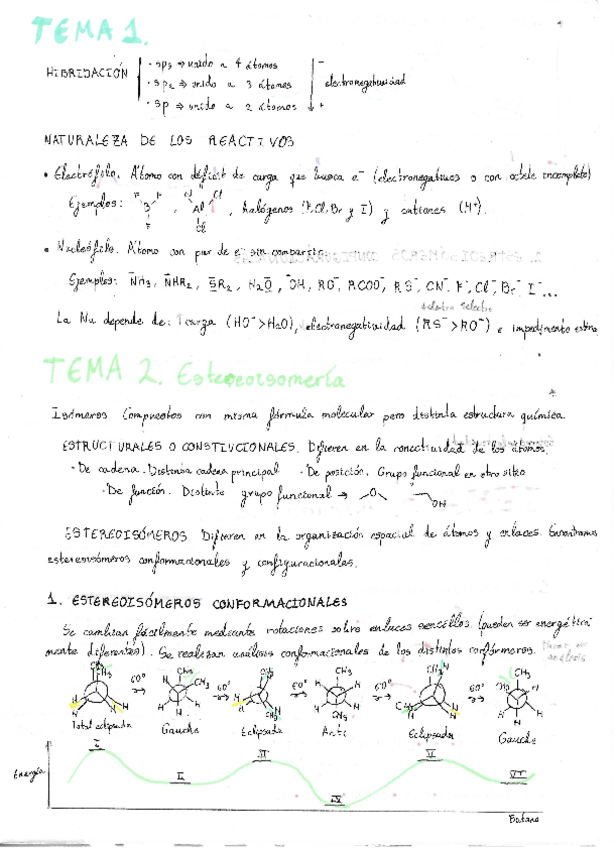 TEMA 1.
HIBRIDACIÓN
· sp3 → unido a 4 átomos -
· sp2 → unido a 3 átomos electronegatividad
· sp → unido a 2 átomos +
NATURALEZA DE LOS REACTIVOS
• Electrófilo. Átomo con déficit de carga que busca e⁻ (electronegativos o con octete incompleto)
Ejemplos: , , halógenos (F, Cl, Br y I) y cationes (H⁺).
• Nucleófilo. Átomo con par de e⁻ sin compartir.
Ejemplos: NH3, NHR2, SR2, H2O, ⁻OH, RO⁻, RCOO⁻, RS⁻, CN⁻, F⁻, Cl⁻, Br⁻, I⁻...
La Nu depende de: carga (HO⁻ > H2O), electronegatividad (RS⁻ > RO⁻) e impedimento
TEMA 2. Estereoisomería
Isómeros Compuestos con misma fórmula molecular pero distinta estructura química.
ESTRUCTURALES O CONSTIVCIONALES. Difieren en la conectividad de los átomos.
· De cadena. Distinta cadena principal · De posición. Grupo funcional en otro sitio
· De función. Distinto grupo funcional → O OH
ESTEREOISÓMEROS Difieren en la organización espacial de átomos y enlaces. Encontramos
estereoisómeros conformacionales y configuracionales.
1. ESTEREOISÓMEROS CONFORMACIONALES
Se cambian fácilmente mediante rotaciones sobre enlaces sencillos. (pueden ser energética
mente diferentes). Se realizan análisis conformacionales de los distintos confórmeros.
60° 60° 60° 60° 60°
Total eclipsada Gauche Eclipsada Anti Eclipsada Gauche
I II III IV V VI
Energía
Butano